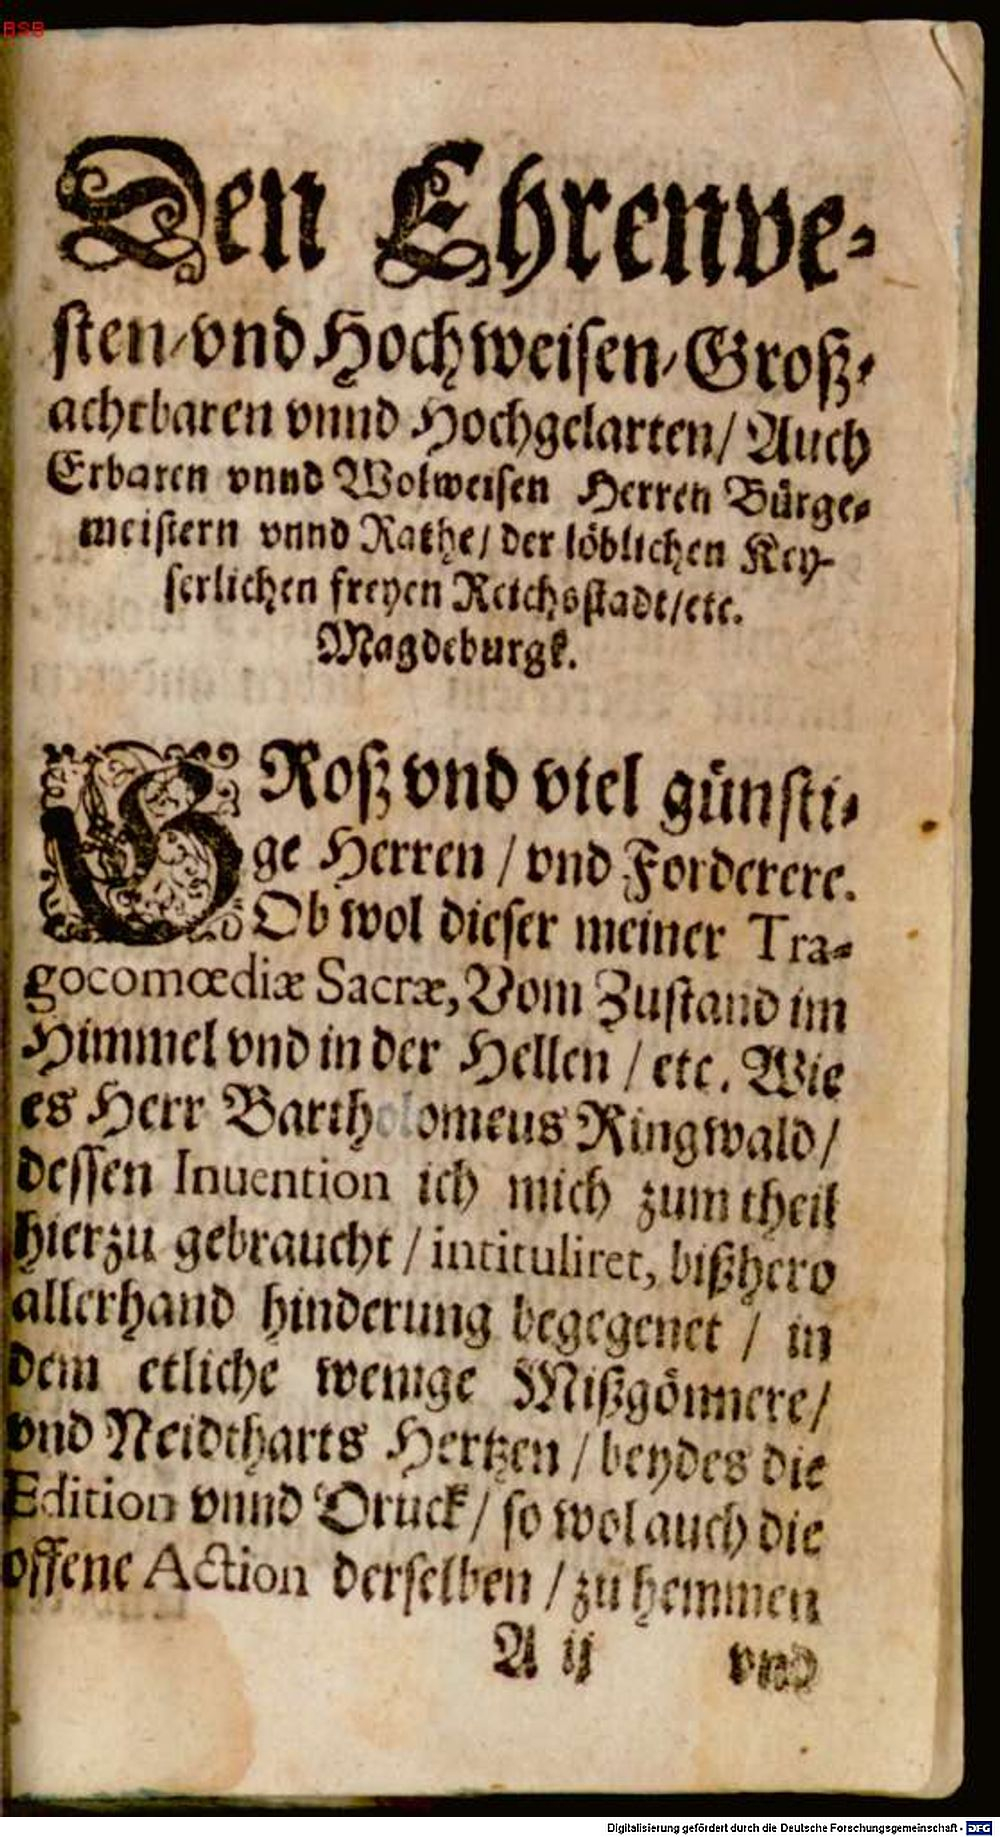 BSB
Den Ehrenve-
sten/vnd Hochweisen/Groß-
achtbaren vnnd Hochgelarten/ Auch
Erbaren vnnd Wolweisen Herren Bürge-
meistern vnnd Rathe/ der löblichen Key-
serlichen freyen Reichsstadt/etc.
Magdeburgk.
GRoß vnd viel günsti-
ge Herren / vnd Forderere.
Ob wol dieser meiner Tra-
gocomœdiæ Sacræ, Vom Zustand im
Himmel vnd in der Hellen / etc. Wie
es Herr Bartholomeus Ringwald/
dessen Inuention ich mich zum theil
hierzu gebraucht / intituliret, bißhero
allerhand hinderung begegenet / in
dem etliche wenige Mißgönnere/
vnd Neidtharts Hertzen / beydes die
Edition vnnd Druck/ so wol auch die
offene Action derselben / zu hemmen
A ij vnd
Digitalisierung gefördert durch die Deutsche Forschungsgemeinschaft - DFG